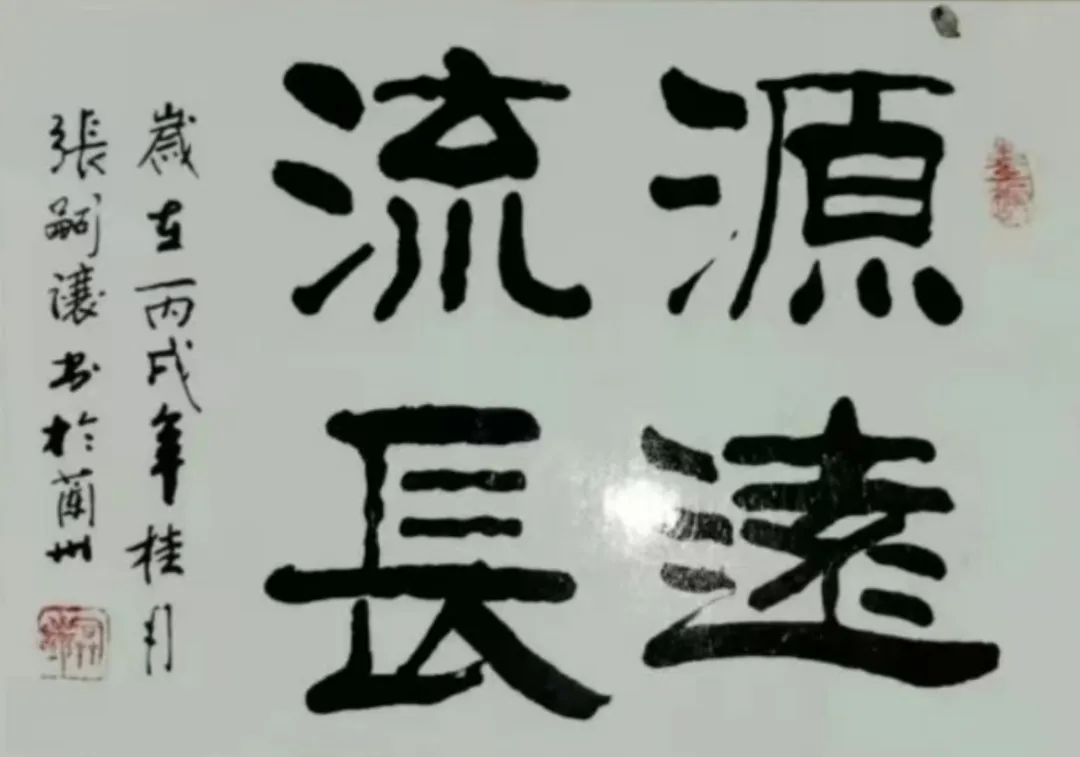 源遠
流長
歲在丙戌年桂月
張嗣讓书於蘭州